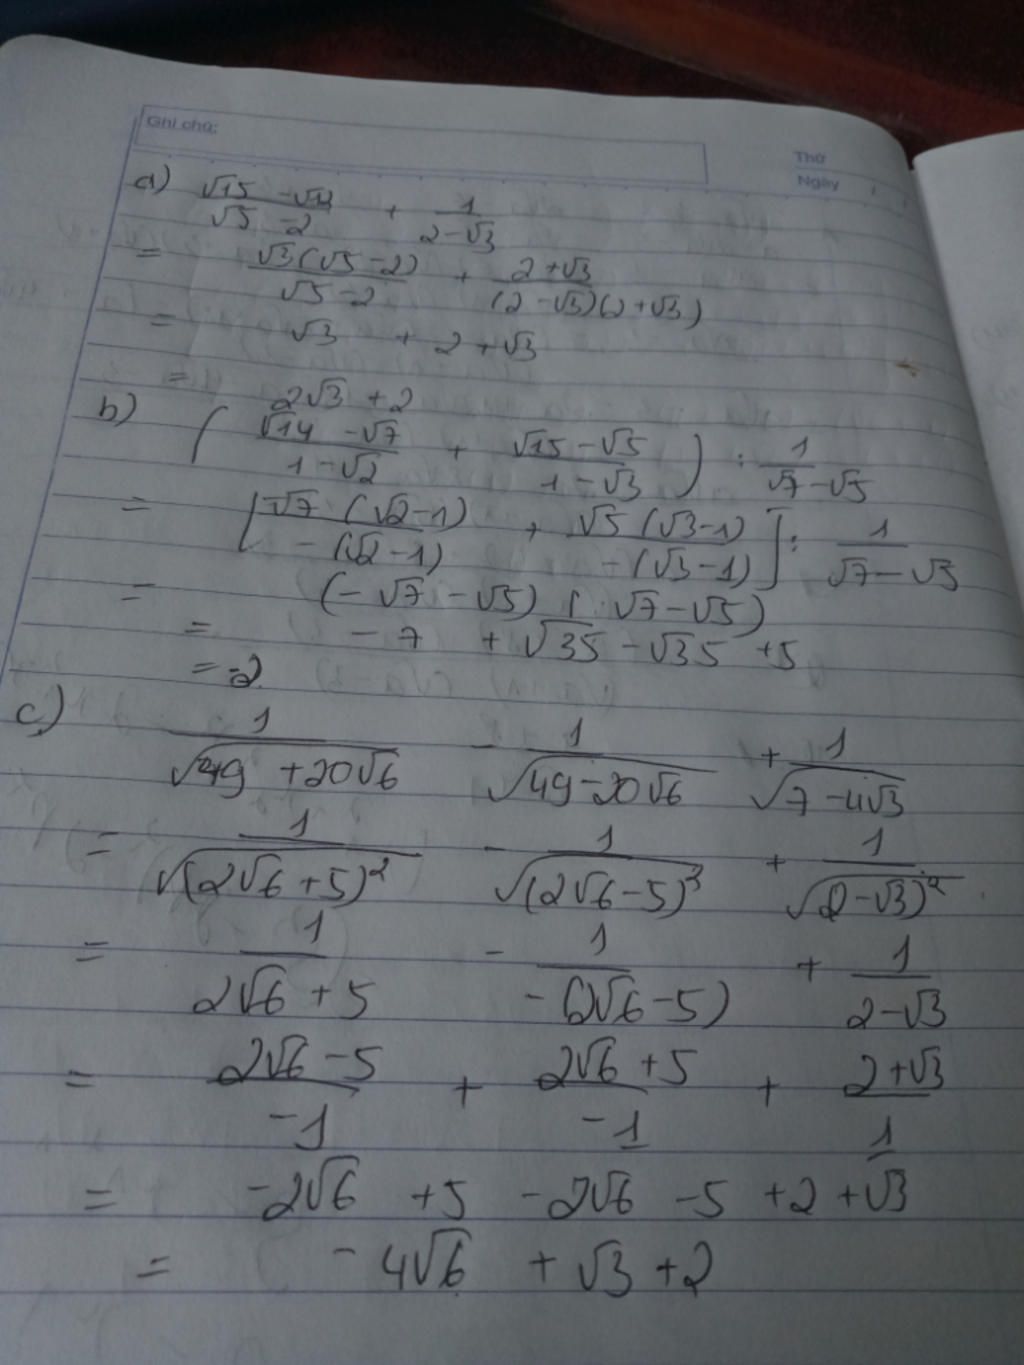 Ghi chú:
Thứ
Ngày
a) (√15 - √12)/(√5 - 2) + 1/(2 - √3)
= √3(√5 - 2)/(√5 - 2) + (2 + √3)/((2 - √3)(2 + √3))
= √3 + 2 + √3
= 2√3 + 2
b) ((√14 - √7)/(1 - √2) + (√15 - √5)/(1 - √3)) : 1/(√7 - √5)
= [√7 (√2 - 1)/(-(√2 - 1)) + √5 (√3 - 1)/(-(√3 - 1))] : 1/(√7 - √5)
= (-√7 - √5) (√7 - √5)
= -7 + √35 - √35 + 5
= -2
c) 1/√(49 + 20√6) - 1/√(49 - 20√6) + 1/√(7 - 4√3)
= 1/√((2√6 + 5)²) - 1/√((2√6 - 5)²) + 1/√((2 - √3)²)
= 1/(2√6 + 5) - 1/(-(2√6 - 5)) + 1/(2 - √3)
= (2√6 - 5)/(-1) + (2√6 + 5)/(-1) + (2 + √3)/1
= -2√6 + 5 - 2√6 - 5 + 2 + √3
= -4√6 + √3 + 2